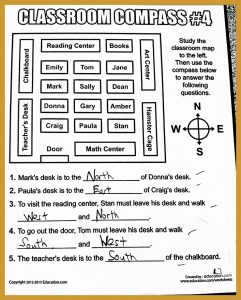 CLASSROOM COMPASS #4
Reading Center
Books
Chalkboard
Emily
Tom
Jane
Art Center
Mark
Sally
Dean
Teacher's Desk
Donna
Gary
Amber
Hamster Cage
Craig
Paula
Stan
Door
Math Center
Study the
classroom map
to the left.
Then use the
compass below
to answer the
following
questions.
N
W
E
S
1. Mark's desk is to the North of Donna's desk.
2. Paula's desk is to the East of Craig's desk.
3. To visit the reading center, Stan must leave his desk and walk
West and North
4. To go out the door, Tom must leave his desk and walk
South and West.
5. The teacher's desk is to the South of the chalkboard.
Copyright 2012-2013 Education.com
Created by: education.com
www.education.com/worksheets